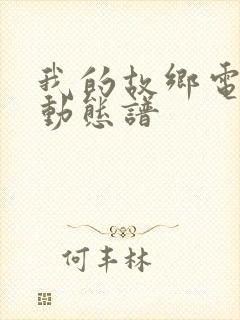 我的故鄉電
動態譜
何丰林